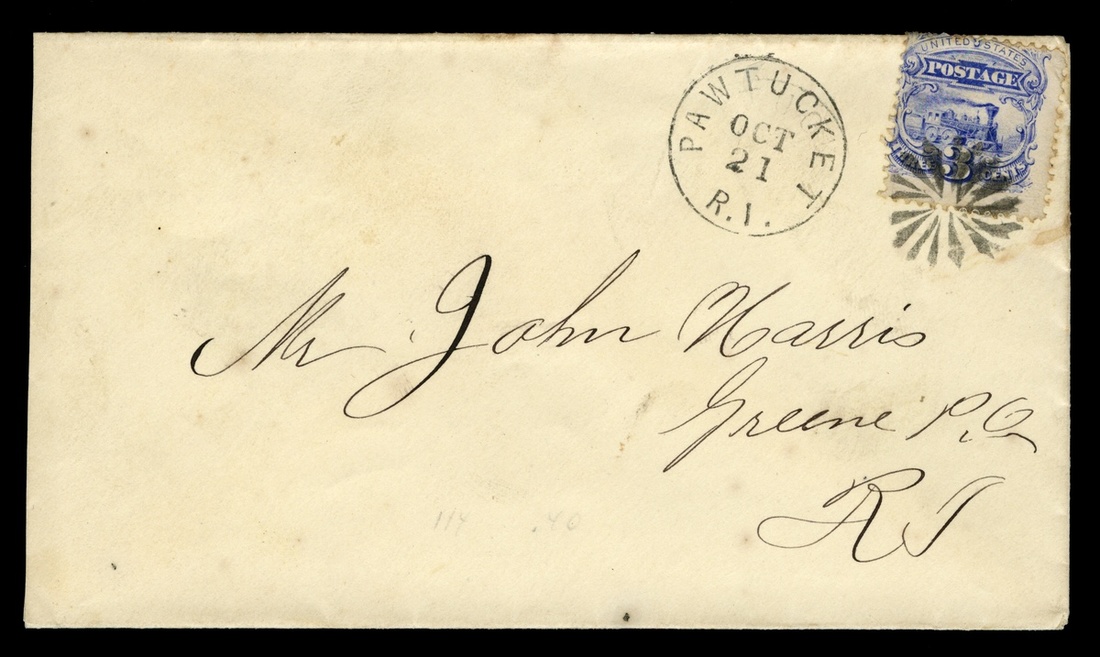 PAWTUCKET
OCT
21
R.I.
UNITED STATES
POSTAGE
THREE 3 CENTS
Mr John Harris
Greene P.O
RI
114 .40